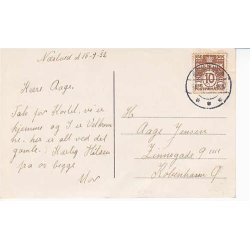 Næstved d. 15-9-32
Kære Aage.
Tak for Kortet, vi er
hjemme og I er Velkom
ne. her er alt ved det
gamle. Kærlig Hilsen
fra os begge
Mor
10
H
Aage Jensen
Zinnsgade 9 III
København Ø